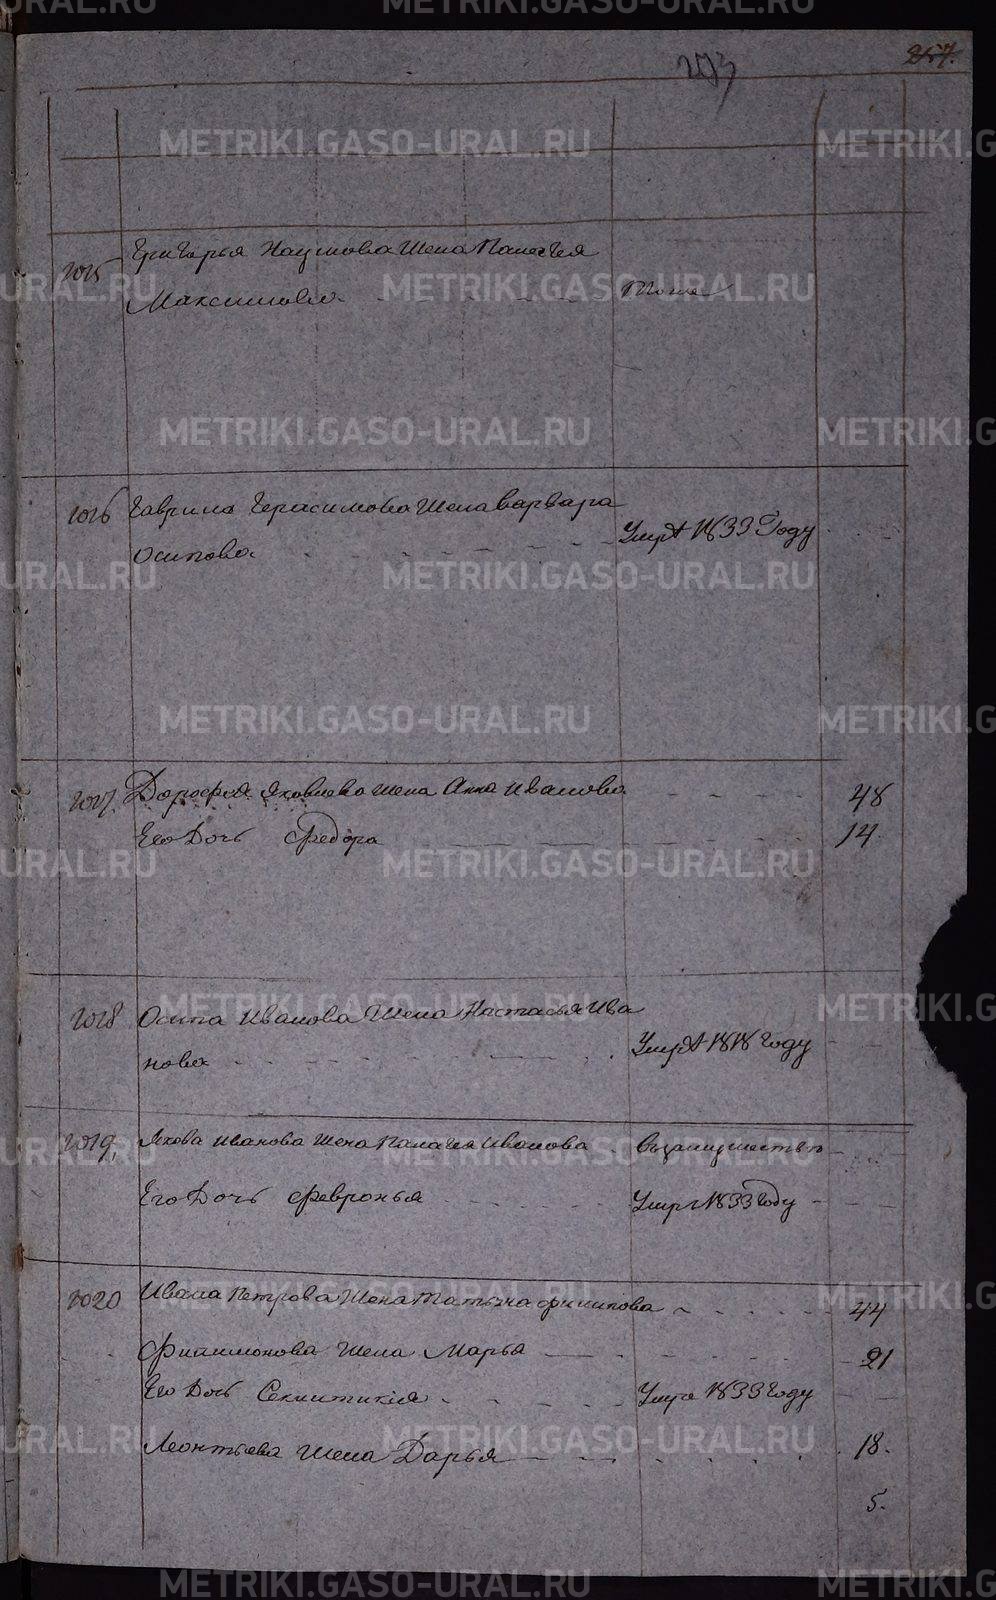 257.
203
1015 Григорья Наумова Жена Палагея
Максимова тоже
1016 Гаврила Герасимова Жена Варвара
Осипова Умре 1833 Году
1017. Дорофея Яковлева Жена Анна Иванова 48
Его Дочь Федора 14.
1018 Осипа Иванова Жена Настасья Ива
нова Умре 1818 Году
1019. Якова Иванова Жена Палагея Иванова
Его Дочь Февронья Умре 1833 Году
1020 Ивана Петрова Жена Татьяна Филипова 44
Филимонова Жена Марья 21
Его Дочь Умре 1833 Году
Леонтьева Жена Дарья 18.
5.
METRIKI.GASO-URAL.RU